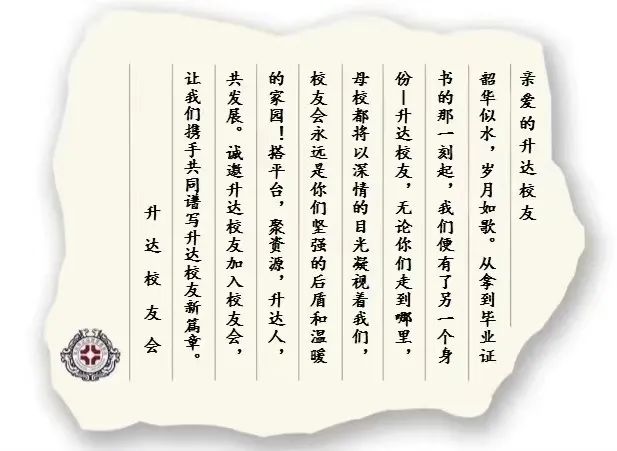 亲爱的升达校友
韶华似水，岁月如歌。从拿到毕业证
书的那一刻起，我们便有了另一个身
份—升达校友，无论你们走到哪里，
母校都将以深情的目光凝视着我们，
校友会永远是你们坚强的后盾和温暖
的家园！搭平台，聚资源，升达人，
共发展。诚邀升达校友加入校友会，
让我们携手共同谱写升达校友新篇章。
升达校友会